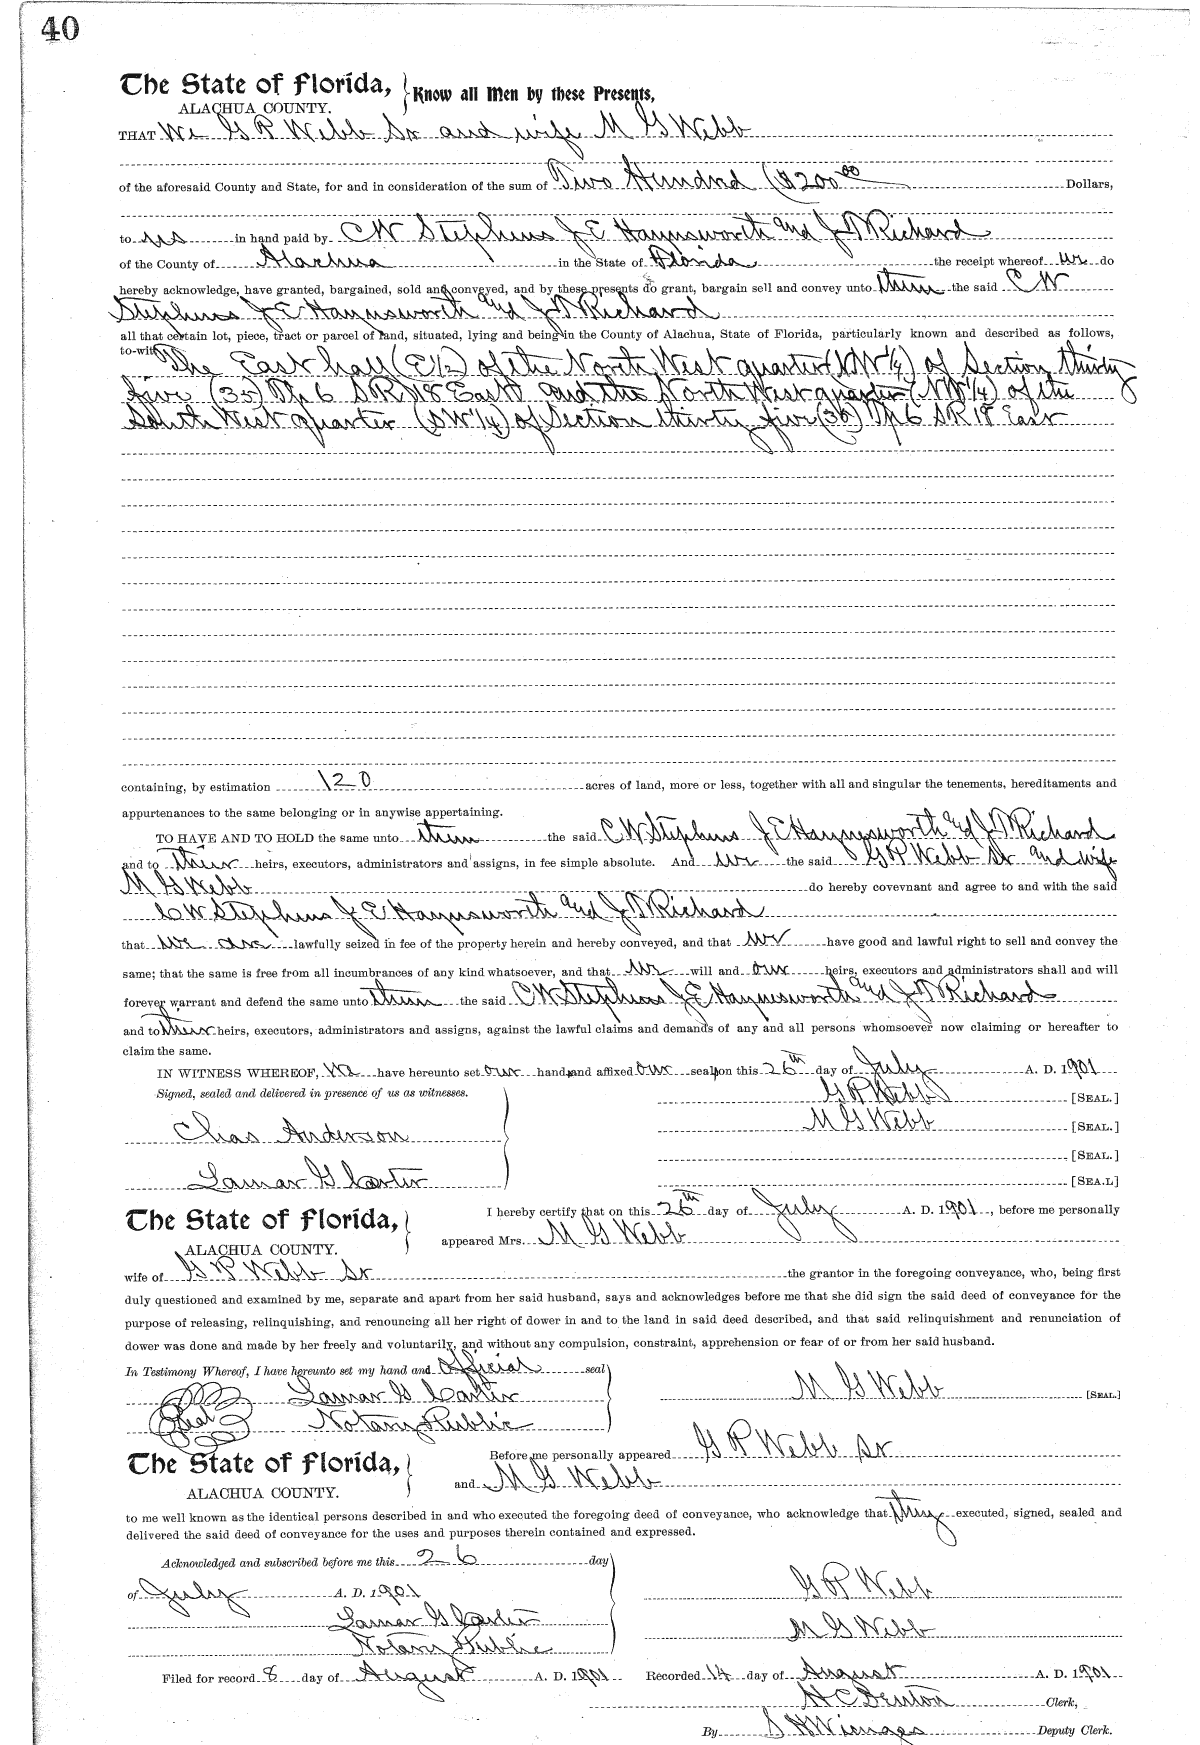 40
The State of Florida, } Know all Men by these Presents,
ALACHUA COUNTY.
THAT We G P Webb Sr and wife M G Webb
of the aforesaid County and State, for and in consideration of the sum of Two Hundrd ($200 00 Dollars,
to us in hand paid by C W Stephens J E Haynsworth and J T Richard
of the County of Alachua in the State of Florida the receipt whereof we do
hereby acknowledge, have granted, bargained, sold and conveyed, and by these presents do grant, bargain sell and convey unto them the said C W
Stephens J E Haynsworth and J T Richard
all that certain lot, piece, tract or parcel of land, situated, lying and being in the County of Alachua, State of Florida, particularly known and described as follows,
to-wit: The East half (E 1/2) of the North West quarter (N W 1/4) of Section thirty
five (35) Tp 6 S R 18 East and the North West quarter (N W 1/4) of the
South West quarter (S W 1/4) of Section thirty five (35) Tp 6 S R 18 East
containing, by estimation 120 acres of land, more or less, together with all and singular the tenements, hereditaments and
appurtenances to the same belonging or in anywise appertaining.
TO HAVE AND TO HOLD the same unto them the said C W Stephens J E Haynsworth and J T Richard
and to their heirs, executors, administrators and assigns, in fee simple absolute. And we the said G P Webb Sr and wife
M G Webb do hereby covevnant and agree to and with the said
C W Stephens J E Haynsworth and J T Richard
that we are lawfully seized in fee of the property herein and hereby conveyed, and that we have good and lawful right to sell and convey the
same; that the same is free from all incumbrances of any kind whatsoever, and that we will and our heirs, executors and administrators shall and will
forever warrant and defend the same unto them the said C W Stephens J E Haynesworth and J T Richard
and to their heirs, executors, administrators and assigns, against the lawful claims and demands of any and all persons whomsoever now claiming or hereafter to
claim the same.
IN WITNESS WHEREOF, We have hereunto set our hand and affixed our seal on this 26th day of July A. D. 1901
Signed, sealed and delivered in presence of us as witnesses.
G P Webb [SEAL.]
M G Webb [SEAL.]
Chas Anderson
[SEAL.]
Lamar G Carter [SEA.L]
The State of Florida, } I hereby certify that on this 26th day of July A. D. 1901, before me personally
ALACHUA COUNTY. appeared Mrs. M G Webb
wife of G P Webb Sr the grantor in the foregoing conveyance, who, being first
duly questioned and examined by me, separate and apart from her said husband, says and acknowledges before me that she did sign the said deed of conveyance for the
purpose of releasing, relinquishing, and renouncing all her right of dower in and to the land in said deed described, and that said relinquishment and renunciation of
dower was done and made by her freely and voluntarily, and without any compulsion, constraint, apprehension or fear of or from her said husband.
In Testimony Whereof, I have hereunto set my hand and official seal
Lamar G Carter M G Webb [SEAL.]
Seal Notary Public
The State of Florida, } Before me personally appeared G P Webb Sr
ALACHUA COUNTY. and M G Webb
to me well known as the identical persons described in and who executed the foregoing deed of conveyance, who acknowledge that they executed, signed, sealed and
delivered the said deed of conveyance for the uses and purposes therein contained and expressed.
Acknowledged and subscribed before me this 26 day
of July A. D. 1901 G P Webb
Lamar G Carter M G Webb
Notary Public
Filed for record 8 day of August A. D. 1901 Recorded 14 day of August A. D. 1901
H C Denton Clerk,
By S H Wienges Deputy Clerk.